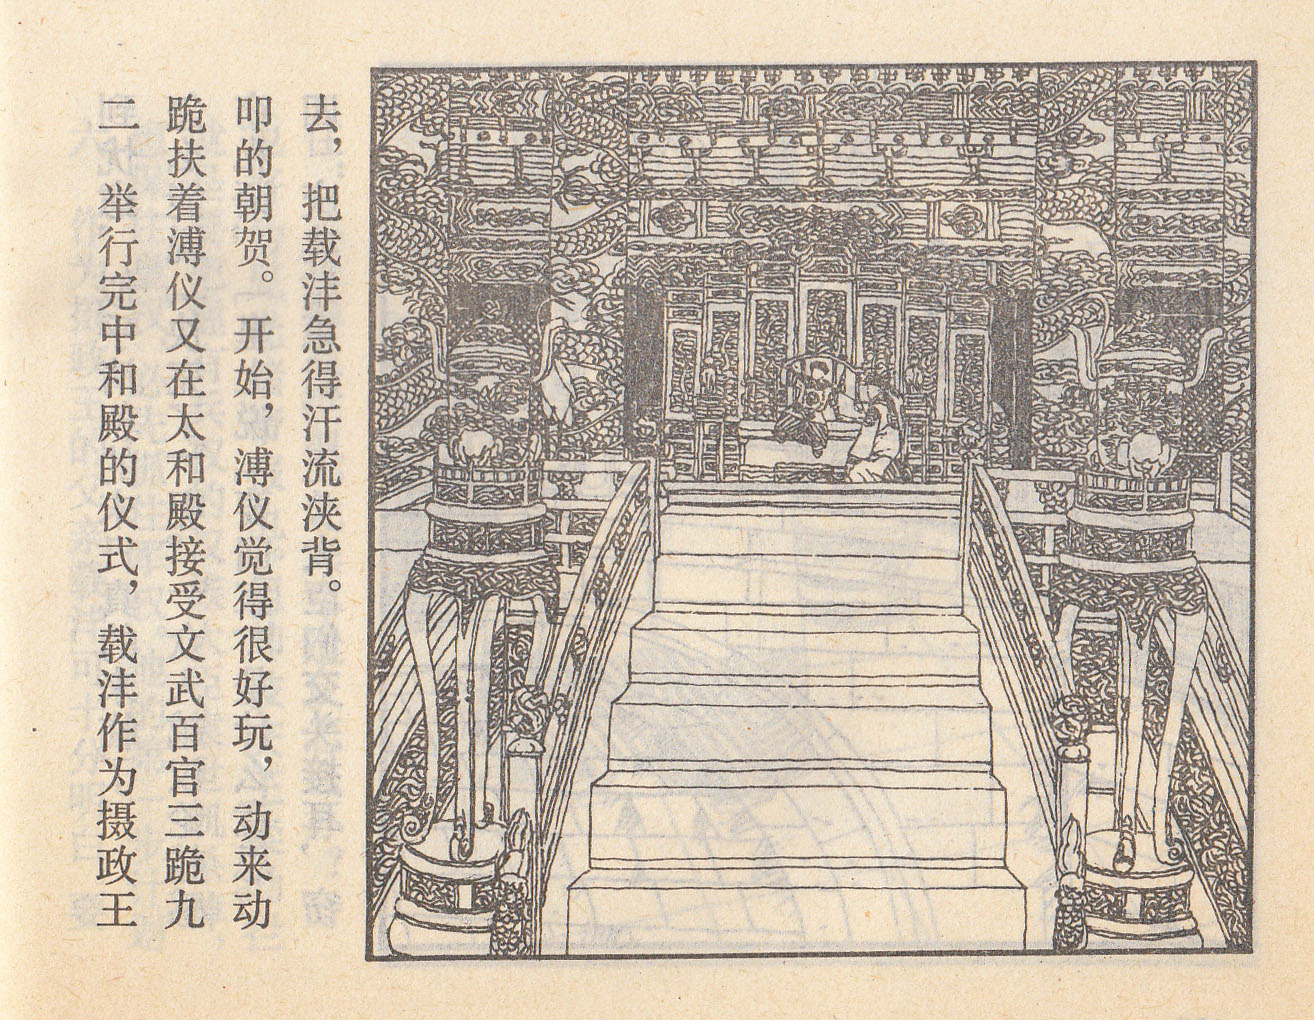 二 举行完中和殿的仪式，载沣作为摄政王
跪扶着溥仪又在太和殿接受文武百官三跪九
叩的朝贺。开始，溥仪觉得很好玩，动来动
去，把载沣急得汗流浃背。